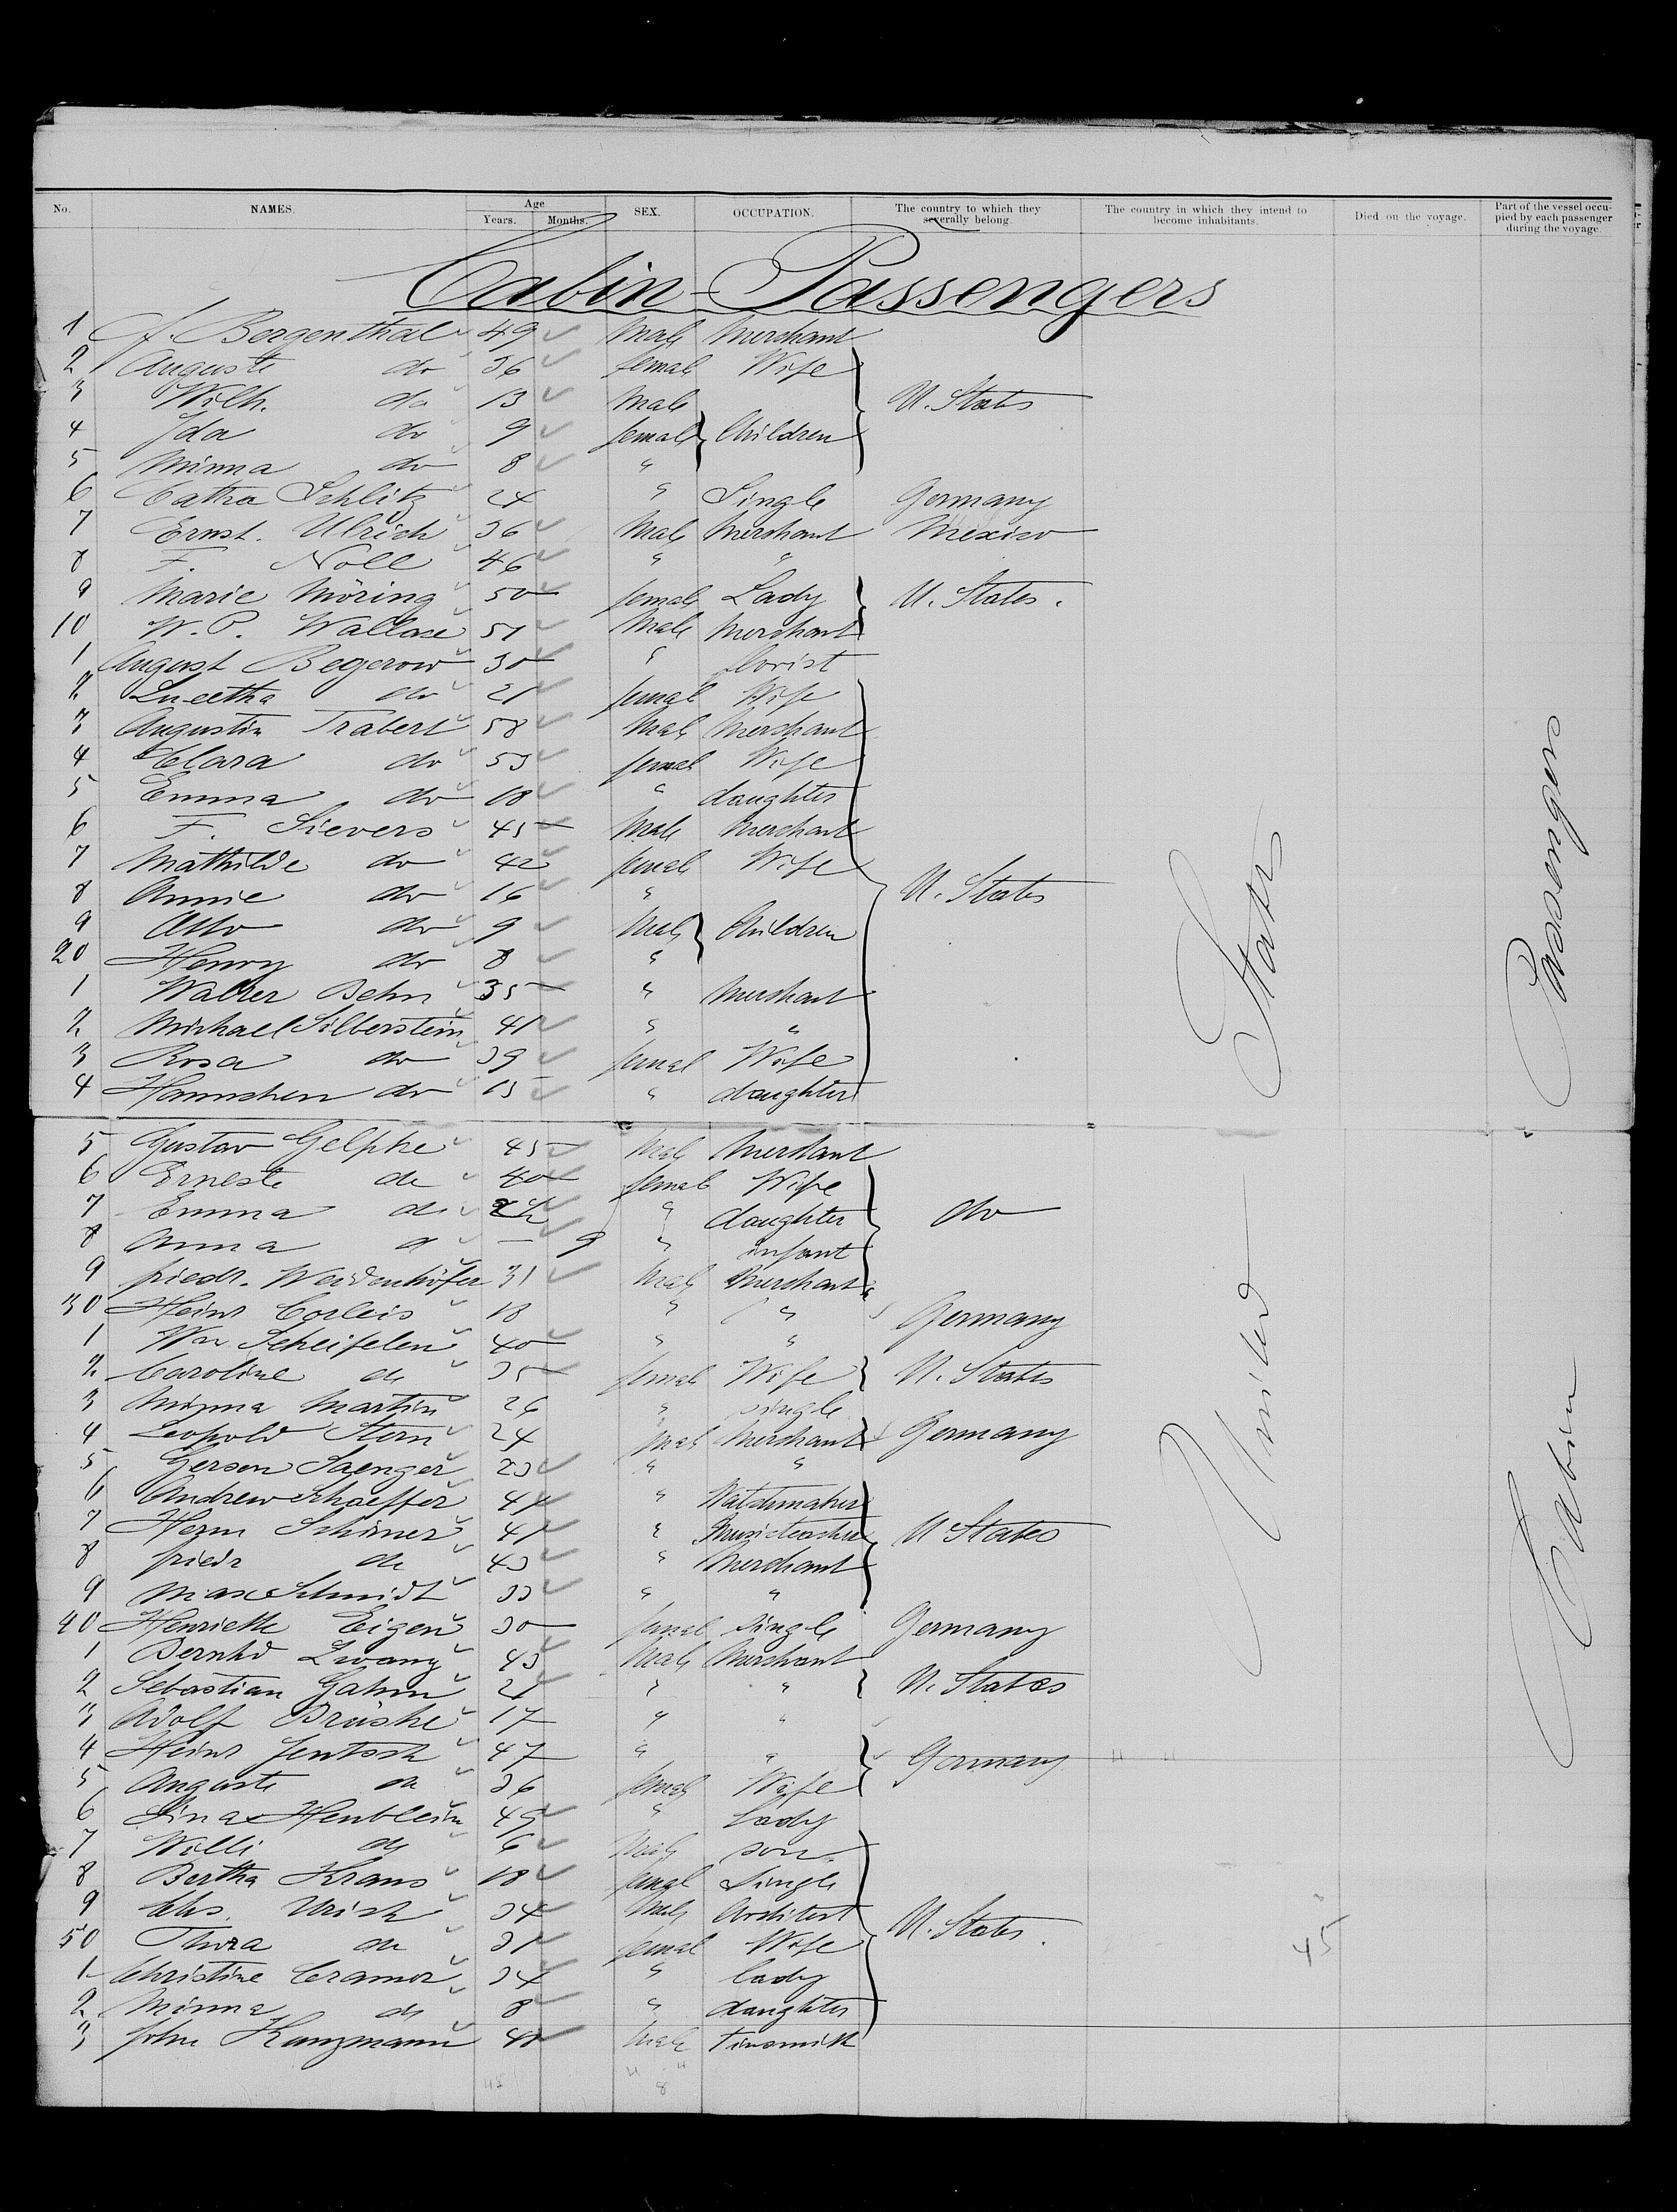 No. NAMES. Age Years. Months. SEX. OCCUPATION. The country to which they severally belong. The country in which they intend to become inhabitants. Died on the voyage. Part of the vessel occupied by each passenger during the voyage.
Cabin-Passengers
1 Bergenthal 49 Male Merchant
2 Auguste do 36 female Wife
3 Wilh. do 13 Male U. States
4 Ida do 9 female Children
5 Minna do 8 "
6 Catha Schlitz 24 " Single Germany
7 Ernst. Ulrich 36 Male Merchant Mexico
8 F. Noll 46 " "
9 Marie Möring 50 female Lady U. States.
10 W. P. Wallace 51 Male Merchant
1 August Begerow 30 " florist
2 do 21 female Wife
3 Augustin Trabert 58 Male Merchant
4 Clara do 53 female Wife
5 Emma do 18 " daughter
6 F. Sievers 45 Male Merchant
7 Mathilde do 42 female Wife
8 Annie do 16 " U. States
9 Otto do 9 Male Children
20 Henry do 8 "
1 Walter Behn 35 " Merchant
2 Michael Silberstein 41 " "
3 Rosa do 39 female Wife
4 Hannchen do 15 " daughter
5 Gustav Gelpke 45 Male Merchant
6 Erneste do 40 female Wife
7 Emma do " daughter do
8 Anna d — 9 " infant
9 friedr. Weidenhöfer 31 Male Merchant
30 Heinr Corleis 18 " " Germany
1 Wm Scheifelen 40 " "
2 Caroline do 35 female Wife U. States
3 Minna Martin 26 " single
4 Leopold Stern 24 Male Merchant Germany
5 Gerson Saenger 23 " "
6 Andrew Schaeffer 41 " Watchmaker
7 Herm Schirner 41 " Musicteacher U States
8 friedr do 43 " Merchant
9 Max Schmidt 33 " "
40 Henriette Eigen 30 female single Germany
1 Bernhd Zwang 43 Male Merchant
2 Sebastian Gahm 21 " " U. States
3 Adolf Brüske 17 " "
4 Heinr Jentsch 47 " " Germany " "
5 Auguste do 36 female Wife
6 Lina Heublein 49 " Lady
7 Willi do 6 Male son
8 Bertha Kraus 18 female Single
9 Chs. Urish 34 Male Architect U. States.
50 Thora do 31 female Wife
1 Christine Cramer 34 " lady
2 Minna do 8 " daughter
3 John Kunzmann 40 Male tinsmith
United States
Cabin Passengers
45